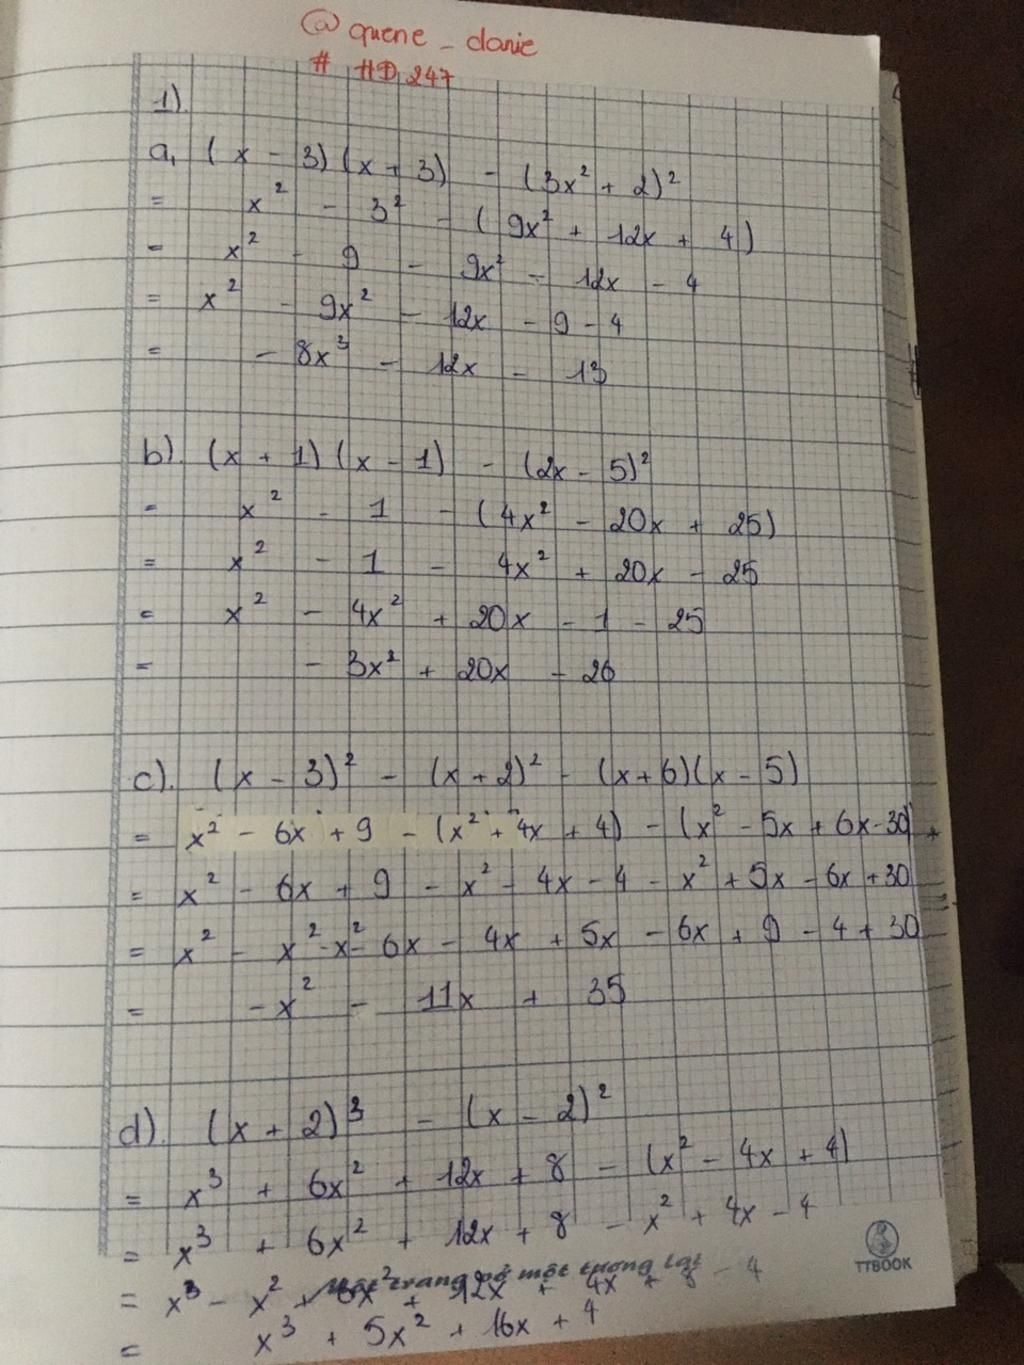 @quene_danie
# HD 247
1)
a, (x - 3)(x + 3) - (3x² + 2)²
= x² - 3² - (9x² + 12x + 4)
= x² - 9 - 9x² - 12x - 4
= x² - 9x² - 12x - 9 - 4
= - 8x³ - 12x - 13
b). (x + 1)(x - 1) - (2x - 5)²
= x² - 1 - (4x² - 20x + 25)
= x² - 1 - 4x² + 20x - 25
= x² - 4x² + 20x - 1 - 25
= - 3x² + 20x - 26
c). (x - 3)² - (x + 2)² - (x + 6)(x - 5)
= x² - 6x + 9 - (x² + 4x + 4) - (x² - 5x + 6x - 30)
= x² - 6x + 9 - x² - 4x - 4 - x² + 5x - 6x + 30
= x² - x² - x² - 6x - 4x + 5x - 6x + 9 - 4 + 30
= - x² - 11x + 35
d). (x + 2)³ - (x - 2)²
= x³ + 6x² + 12x + 8 - (x² - 4x + 4)
= x³ + 6x² + 12x + 8 - x² + 4x - 4
Một trang vở một tương lai
TTBOOK
= x³ - x² + 6x² + 12x + 4x + 8 - 4
= x³ + 5x² + 16x + 4